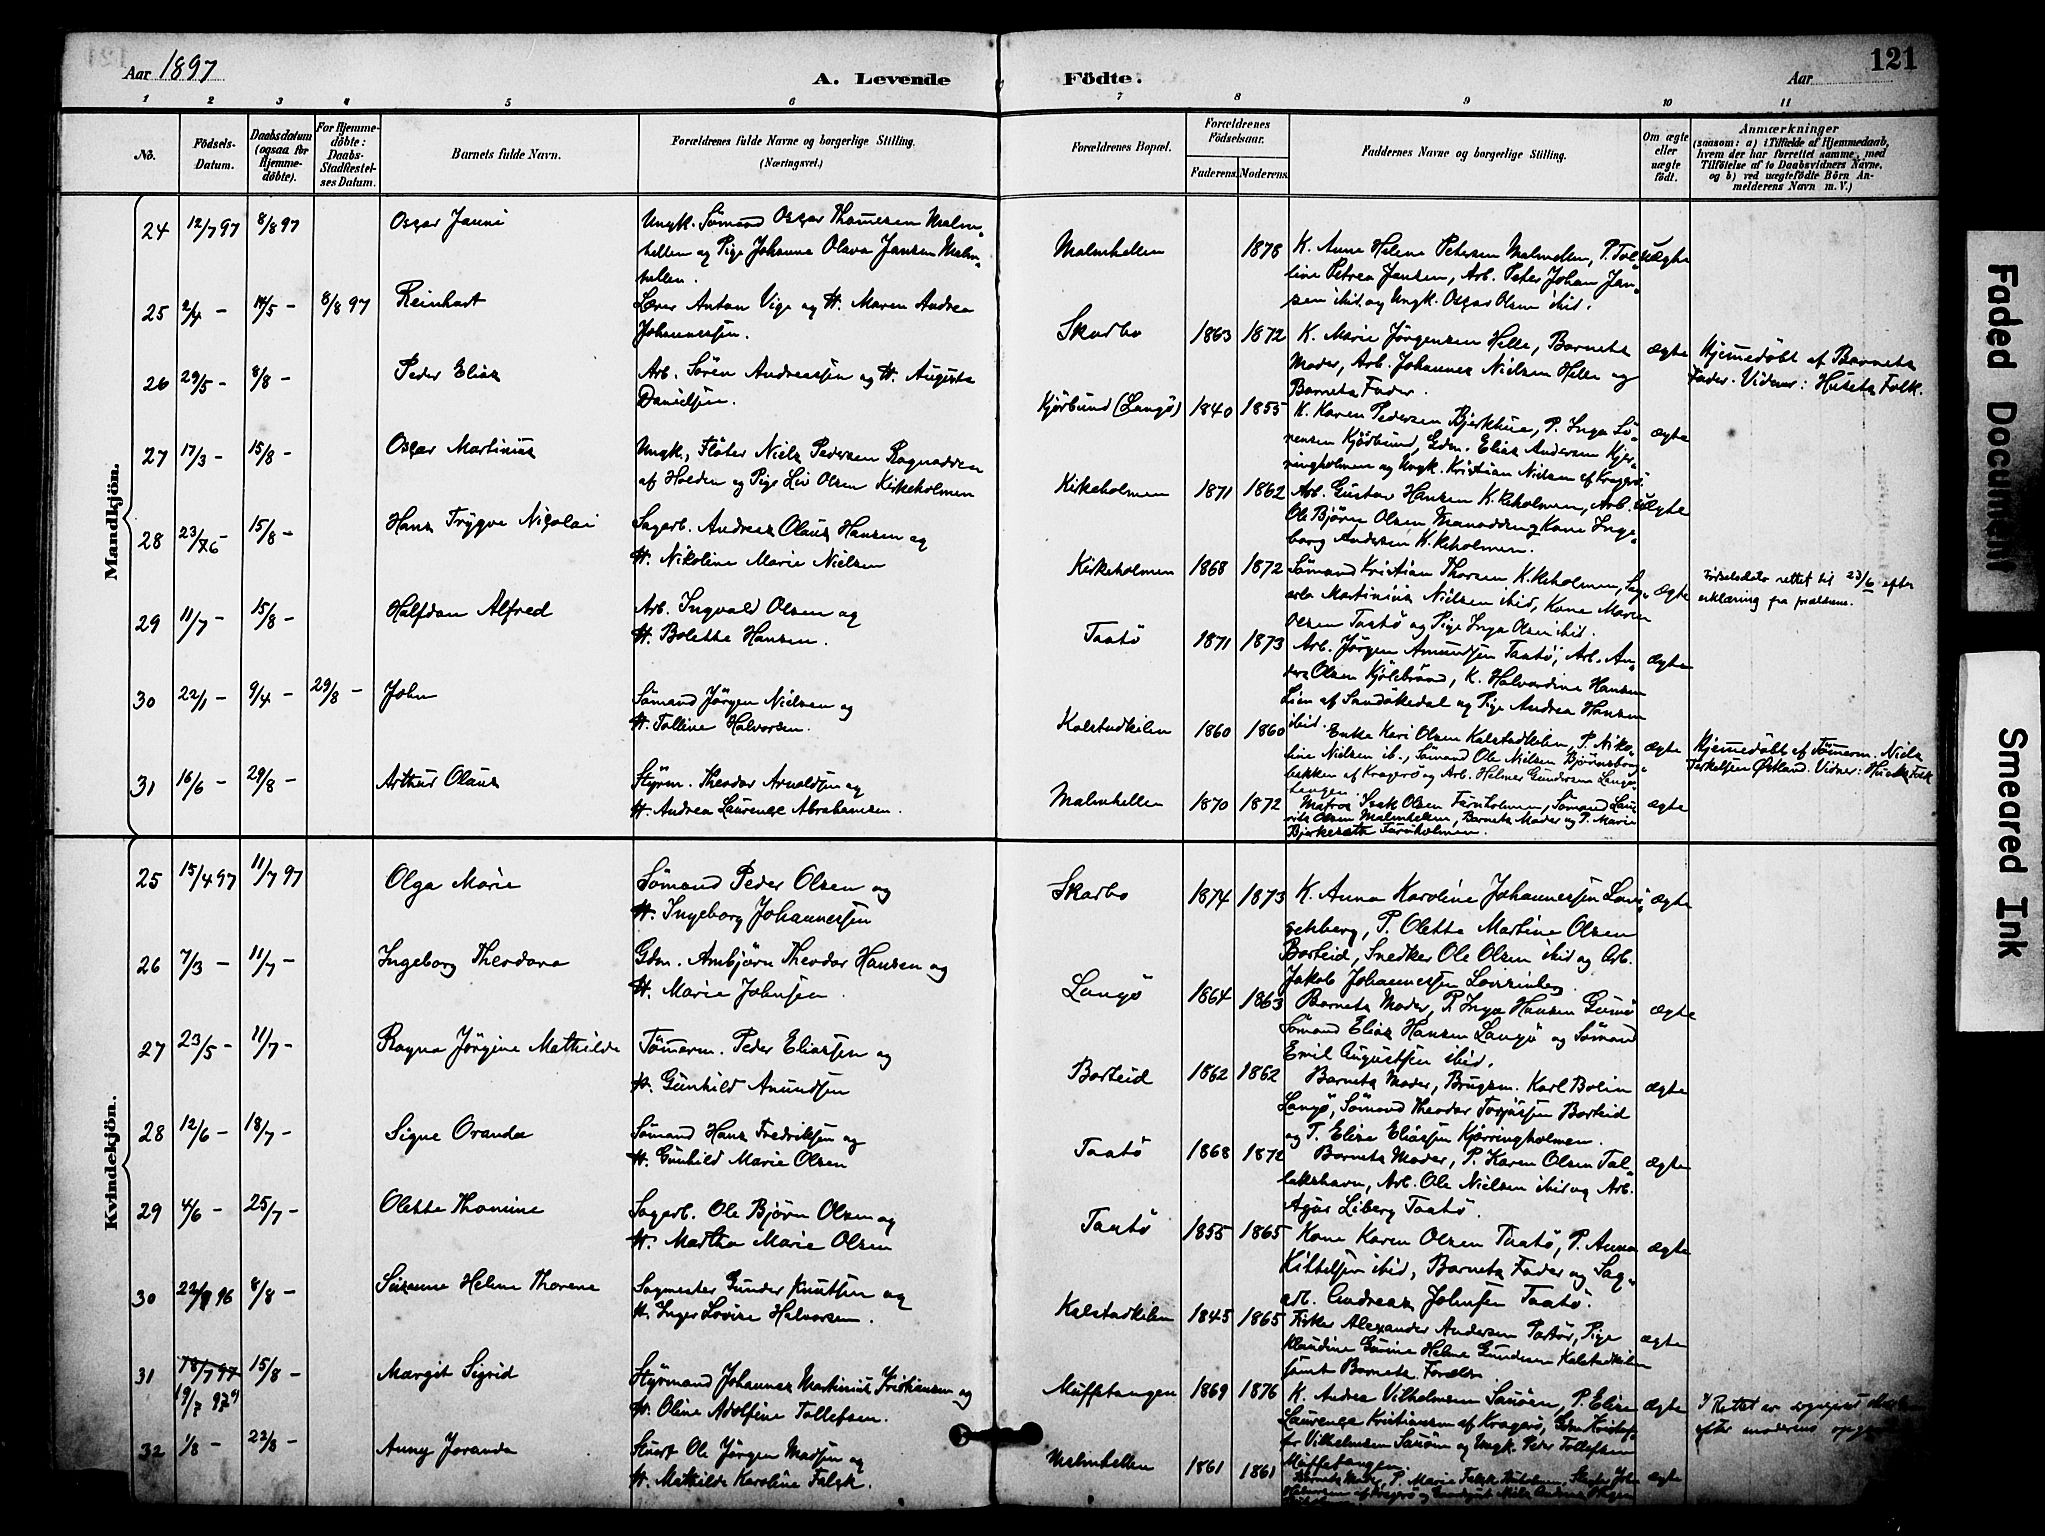 Aar 1897
A. Levende Födte.
Aar
121
1 2 3 4 5 6 7 8 9 10 11
No.
Födsels-Datum.
Daabsdatum (ogsaa for Hjemme-döbte).
For Hjemme-döbte: Daabs-Stadfæstel-ses Datum.
Barnets fulde Navn.
Forældrenes fulde Navne og borgerlige Stilling.
(Næringsvei.)
Forældrenes Bopæl.
Forældrenes Födselsaar.
Faderens. Moderens.
Faddernes Navne og borgerlige Stilling.
Om ægte eller uægte födt.
Anmærkninger
(saasom: a) i Tilfælde af Hjemmedaab,
hvem der har forrettet samme, med
Tilföielse af to Daabsvidners Navne,
og b) ved uægtefödte Börn An-
melderens Navn m. V.)
Mandkjön.
24 12/7 97 8/8 97 Oscar Janni
Ungk. Sömand Oscar Thomesen Malm-
hellen og Pige Johanna Olava Jansen Malm-
hellen.
Malmhellen 1878
K. Anne Helene Petersen Malmhellen, P. Tol-
line Petrea Jansen, Arb. Peter Johan Jan-
sen ibid. og Ungk. Oscar Olsen ibid.
uægte
25 2/4 - 14/5 - 8/8 97 Reinhart
Lærer Anton Vige og H. Maren Andrea
Johannessen.
Skarbo 1863 1872
K. Marie Jörgensen Helle, Barnets
Moder, Arb. Johannes Nielsen Helle og
Barnets Fader.
ægte
Hjemmedöbt af Barnets
Fader. Vidner: Husets Folk.
26 29/5 - 8/8 - Peder Elias
Arb. Sören Andreassen og H. Augusta
Danielsen.
Kjörbund (Langö) 1840 1855
K. Karen Pedersen Bjerkhue, P. Inga Sö-
rensen Kjörbund, Gdm. Elias Andersen Kjer-
ringholmen og Ungk. Kristian Nielsen af Kragerö.
ægte
27 17/3 - 15/8 - Oscar Martinius
Ungk. Flöter Niels Pedersen Ragnadden
af Holden og Pige Liv Olsen Kirkeholmen
Kirkeholmen 1871 1862
Arb. Gustav Hansen K.keholmen, Arb.
Ole Björn Olsen og Kone Inge-
borg Andersen K.keholmen.
uægte
28 23/6 - 15/8 - Hans Trygve Nicolai
Sagarb. Andreas Olaus Hansen og
H. Nikoline Marie Nielsen
Kirkeholmen 1868 1872
Sömand Kristian Thorsen K.keholmen, Sag-
arb. Martinius Nielsen ibid, Kone Maren
Olsen Taatö og Pige Inga Olsen ibid.
ægte
Fødselsdato rettet til 23/6 efter
erklæring fra forældrene.
29 11/7 - 15/8 - Halfdan Alfred
Arb. Ingvald Olsen og
H. Bolette Hansen.
Taatö 1871 1873
Arb. Jörgen Amundsen Taatö, Arb. An-
ders Olsen Kjölebrönd, K. Halvardine Hansen
Lien af Sandökedal og Pige Andrea Hansen
ibid.
ægte
30 22/1 - 9/4 - 29/8 - John
Sömand Jörgen Nielsen og
H. Tolline Halvorsen.
Kalstadkilen 1860 1860
Enke Kari Olsen Kalstadkilen, P. Niko-
line Nielsen ib., Sömand Ole Nielsen Björnsborg-
bakken af Kragerö og Arb. Helmer Gundersen Lang-
tangen.
ægte
Hjemmedöbt af Tömerm. Niels
Terkelsen Östland. Vidner: Husets Folk
31 16/6 - 29/8 - Arthur Olaus
Styrm. Theodor Arnoldsen og
H. Andrea Laurense Abrahamsen.
Malmhellen 1870 1872
Matros Isak Olsen Furuholmen, Sömand Lau-
rits Olsen Malmhellen, Barnets Moder og P. Marie
Bjerkesæth Furuholmen.
ægte
Kvindekjön.
25 15/4 97 11/7 97 Olga Marie
Sömand Peder Olsen og
H. Ingeborg Johannessen
Skarbo 1874 1873
K. Anna Karoline Johannessen Lovi-
senberg, P. Olette Martine Olsen
Borteid, Snedker Ole Olsen ibid og Arb.
Jakob Johannessen Lovisenberg.
ægte
26 7/3 - 11/7 - Ingeborg Theodora
Gdm. Anbjörn Theodor Hansen og
H. Marie Johnsen.
Langö 1864 1863
Barnets Moder, P. Inga Hansen Gumö
Sömand Elias Hansen Langö og Sömand
Emil Augustsen ibid.
ægte
27 23/5 - 11/7 - Ragna Jörgine Mathilde
Tömerm. Peder Eliassen og
H. Gunhild Amundsen
Borteid 1862 1862
Barnets Moder, Brugsm. Karl Bolin
Langö, Sömand Theodor Torjussen Borteid
og T. Elise Eliassen Kjærringholmen.
ægte
28 12/6 - 18/7 - Signe Oranda
Sömand Hans Fredriksen og
H. Gunhild Marie Olsen
Taatö 1868 1872
Barnets Moder, P. Karen Olsen Tal-
lakshavn, Arb. Ole Nielsen ibid og Arb.
Liberg Taatö.
ægte
29 4/6 - 25/7 - Olette Thomine
Sagarb. Ole Björn Olsen og
H. Martha Marie Olsen
Taatö 1855 1865
Kone Karen Olsen Taatö, P. Anna
Kittelsen ibid, Barnets Fader og Sag-
arb. Andreas Johnsen Taatö.
ægte
30 22/8 96 8/8 - Susanne Helene Thorene
Sagmester Gunder Knutsen og
H. Inger Lovise Halvorsen.
Kalstadkilen 1845 1865
Fisker Alexander Andersen Portör, Pige
Klaudine Gurine Helene Gundersen Kalstadkilen
samt Barnets Forældre
ægte
31 18/7 97 15/8 - Margit Sigrid
19/7 97
Styrmand Johannes Martinius Kristiansen og
H. Oline Adolfine Tollefsen.
Müffetangen 1869 1876
K. Andrea Vilhelmsen Saröen, P. Elise
Laurense Kristiansen af Kragerö, Gdm Kristof-
fer Vilhelmsen Saröen og Ungk. Peder Tollefsen
Müffetangen.
ægte
Rettet av
efter moderens
32 1/8 - 22/8 - Anny Joranda
Stuert Ole Jörgen Madsen og
H. Mathilde Karoline Falck.
Malmhellen 1861 1861
Barnets Moder, P. Marie Falck
ægte
Faded Document
Smeared Ink